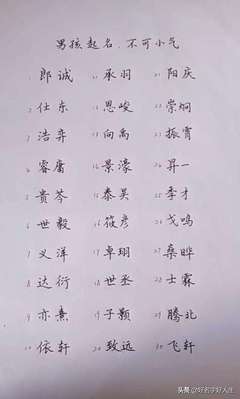 男孩起名、不可小气
1 郎诚 11 承羽 21 阳庆
2 仕东 12 思峻 22 崇炯
3 浩弈 13 向禹 23 振霄
4 睿庸 14 景濠 24 昇一
5 贵芩 15 泰昊 25 季才
6 世毅 16 筱彦 26 戈鸣
7 义洋 17 卓珝 27 桑晔
8 达衍 18 世丞 28 士霖
9 亦熹 19 子颢 29 腾北
10 依轩 20 致远 30 飞轩
头条 @好名字好人生